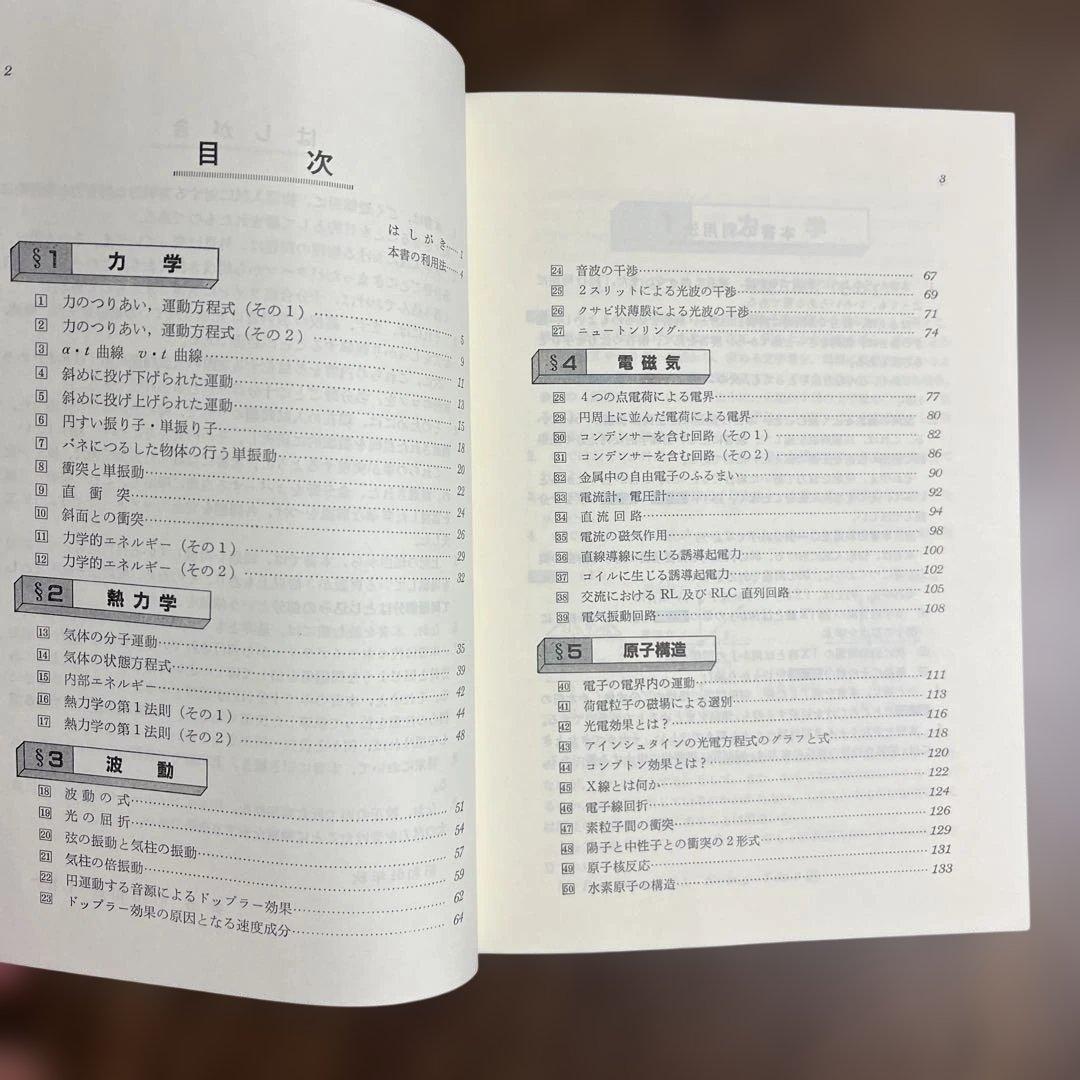 2
目 次
はしがき……1
本書の利用法……4
§1 力学
1 力のつりあい，運動方程式（その1）……5
2 力のつりあい，運動方程式（その2）……9
3 α・t 曲線 v・t 曲線……11
4 斜めに投げ下げられた運動……13
5 斜めに投げ上げられた運動……15
6 円すい振り子・単振り子……18
7 バネにつるした物体の行う単振動……20
8 衝突と単振動……22
9 直衝突……24
10 斜面との衝突……26
11 力学的エネルギー（その1）……29
12 力学的エネルギー（その2）……32
§2 熱力学
13 気体の分子運動……35
14 気体の状態方程式……39
15 内部エネルギー……42
16 熱力学の第1法則（その1）……44
17 熱力学の第1法則（その2）……48
§3 波動
18 波動の式……51
19 光の屈折……54
20 弦の振動と気柱の振動……57
21 気柱の倍振動……59
22 円運動する音源によるドップラー効果……62
23 ドップラー効果の原因となる速度成分……64
3
24 音波の干渉……67
25 2スリットによる光波の干渉……69
26 クサビ状薄膜による光波の干渉……71
27 ニュートンリング……74
§4 電磁気
28 4つの点電荷による電界……77
29 円周上に並んだ電荷による電界……80
30 コンデンサーを含む回路（その1）……82
31 コンデンサーを含む回路（その2）……86
32 金属中の自由電子のふるまい……90
33 電流計，電圧計……92
34 直流回路……94
35 電流の磁気作用……98
36 直線導線に生じる誘導起電力……100
37 コイルに生じる誘導起電力……102
38 交流における RL 及び RLC 直列回路……105
39 電気振動回路……108
§5 原子構造
40 電子の電界内の運動……111
41 荷電粒子の磁場による選別……113
42 光電効果とは？……116
43 アインシュタインの光電方程式のグラフと式……118
44 コンプトン効果とは？……120
45 X線とは何か……122
46 電子線回折……124
47 素粒子間の衝突……126
48 陽子と中性子との衝突の2形式……129
49 原子核反応……131
50 水素原子の構造……133